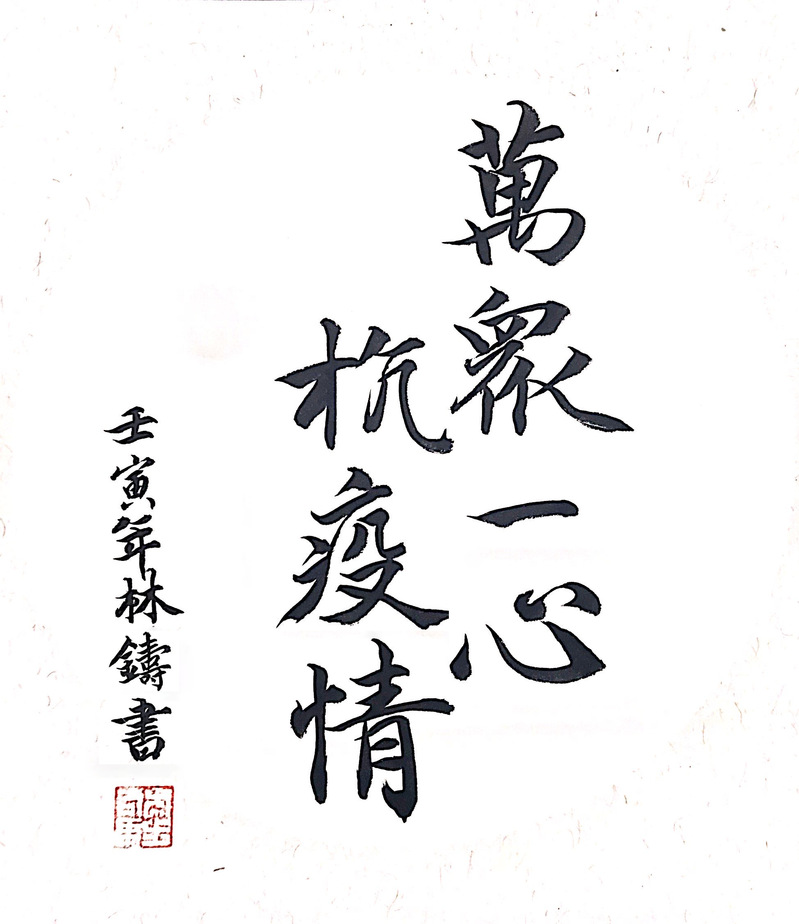 萬眾一心
抗疫情
壬寅年林鑄書